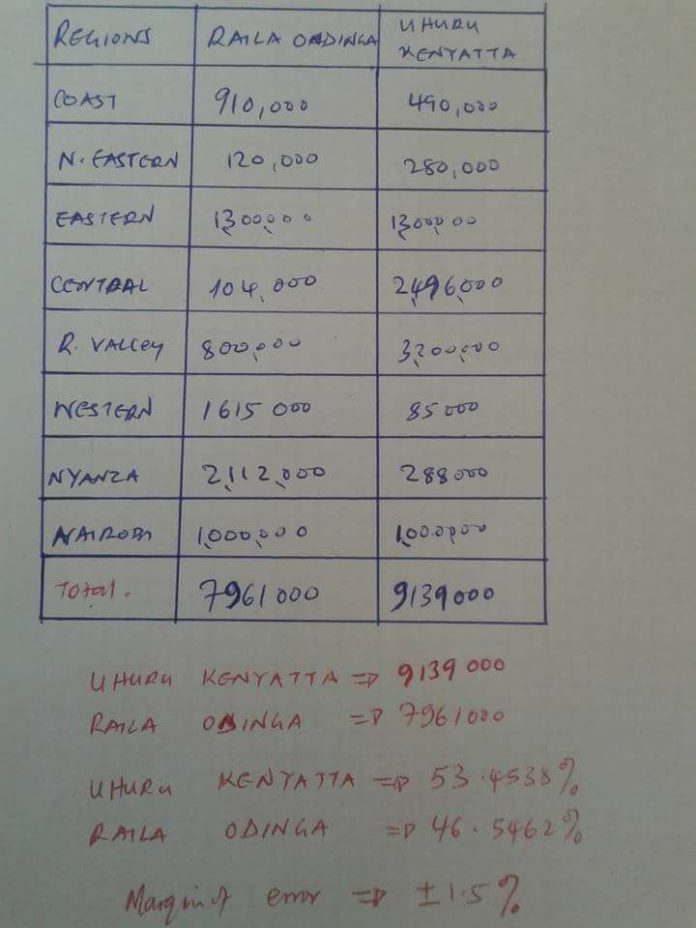 REGIONS RAILA ONDINGA UHURU KENYATTA
COAST 910,000 490,000
N. EASTERN 120,000 280,000
EASTERN 1,300,000 1,300,000
CENTRAL 104,000 2,496,000
R. VALLEY 800,000 3,200,000
WESTERN 1615 000 85 000
NYANZA 2,112,000 288 000
NAIROBI 1,000,000 1,000,000
Total. 7961 000 9139 000
UHURU KENYATTA => 9139 000
RAILA ODINGA => 7961000
UHURU KENYATTA => 53.4538%
RAILA ODINGA => 46.5462%
Margin of error => ±1.5%